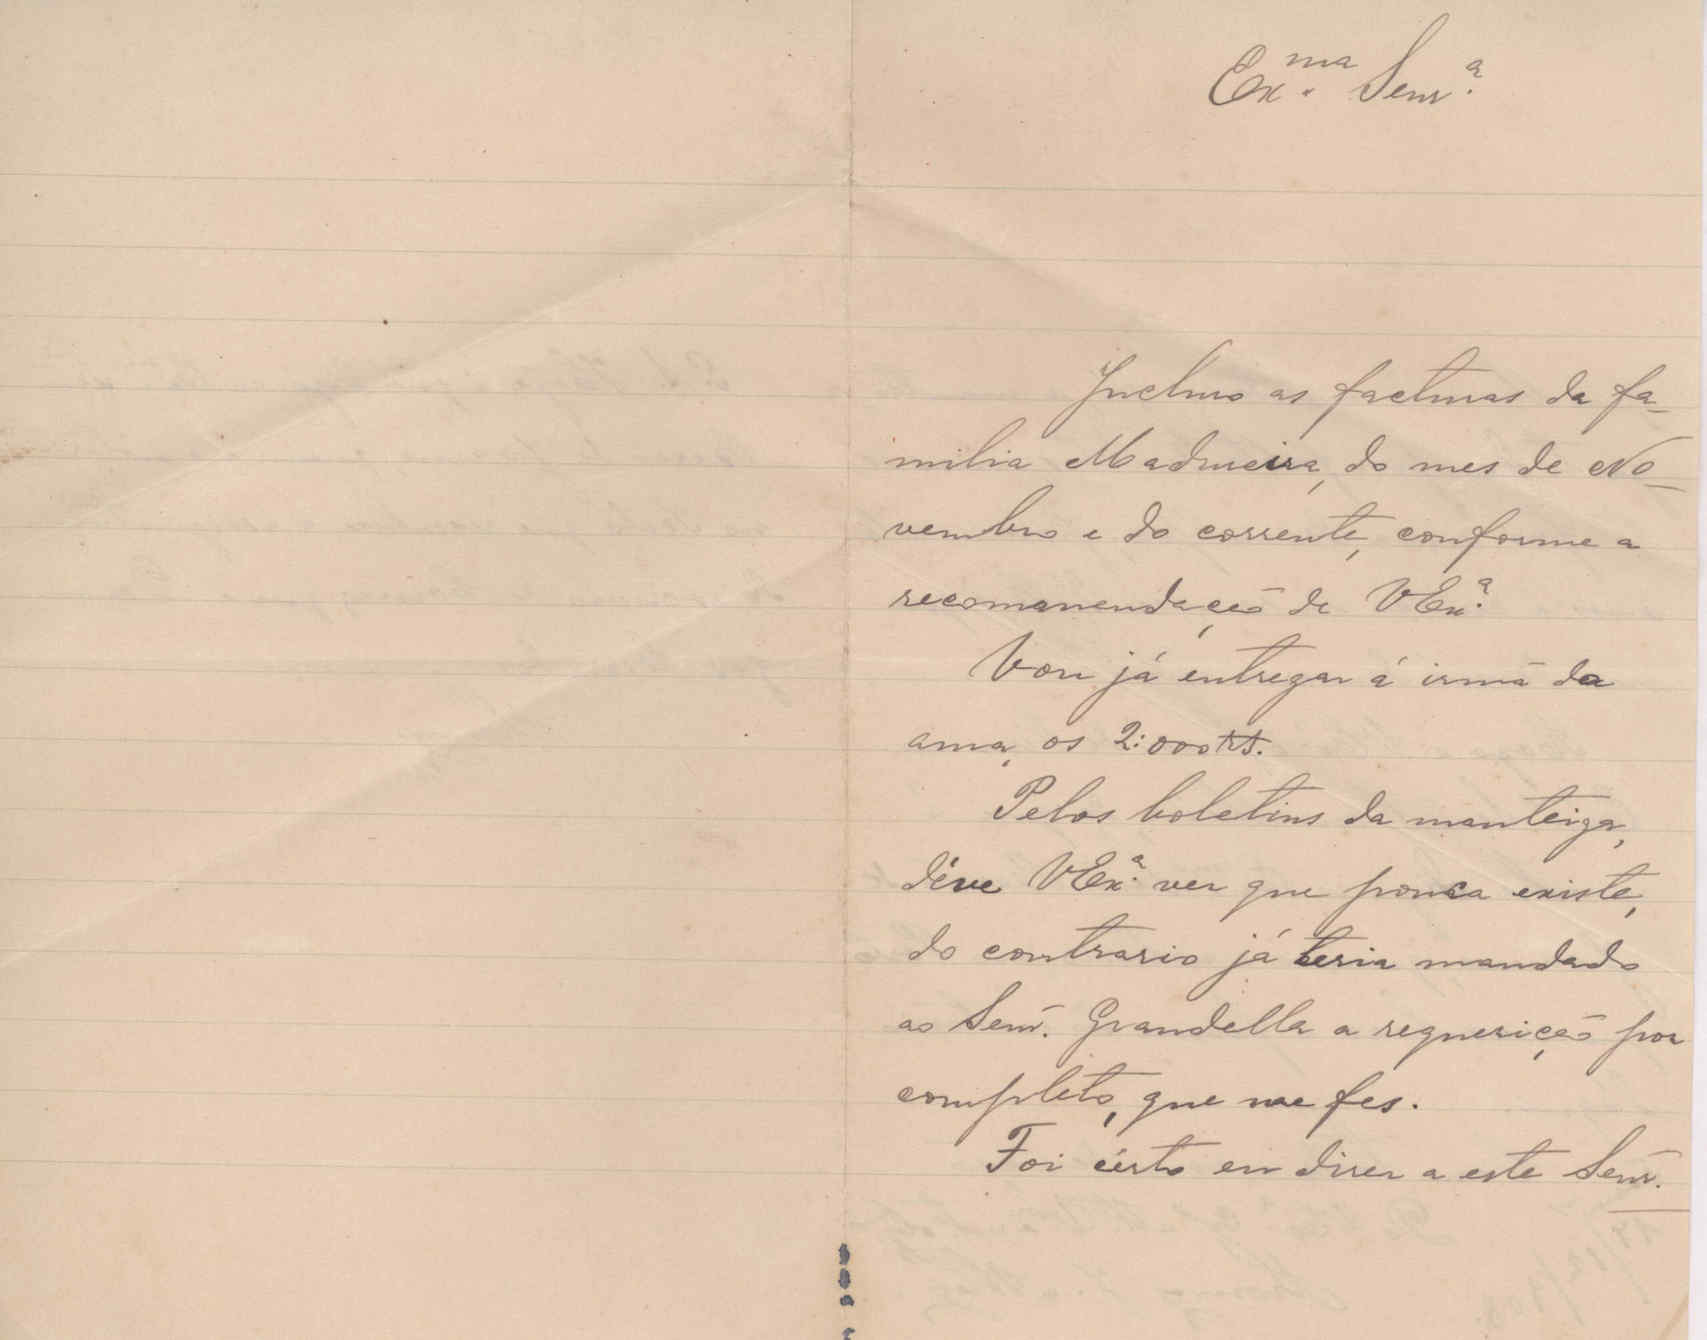 Ex.ma Senr.a
Incluso as facturas da fa-
milia Madureira, do mes de No-
vembro e do corrente, conforme a
recomanendação de VEx.a
Vou já entregar á irmã da
ama, os 2:000 rs.
Pelos boletins da manteiga,
déve VEx.a ver que pouca existe,
do contrario já teria mandado
ao Senr. Grandella a requerição por
completo, que me fes.
Foi cérto eu diser a este Senr.